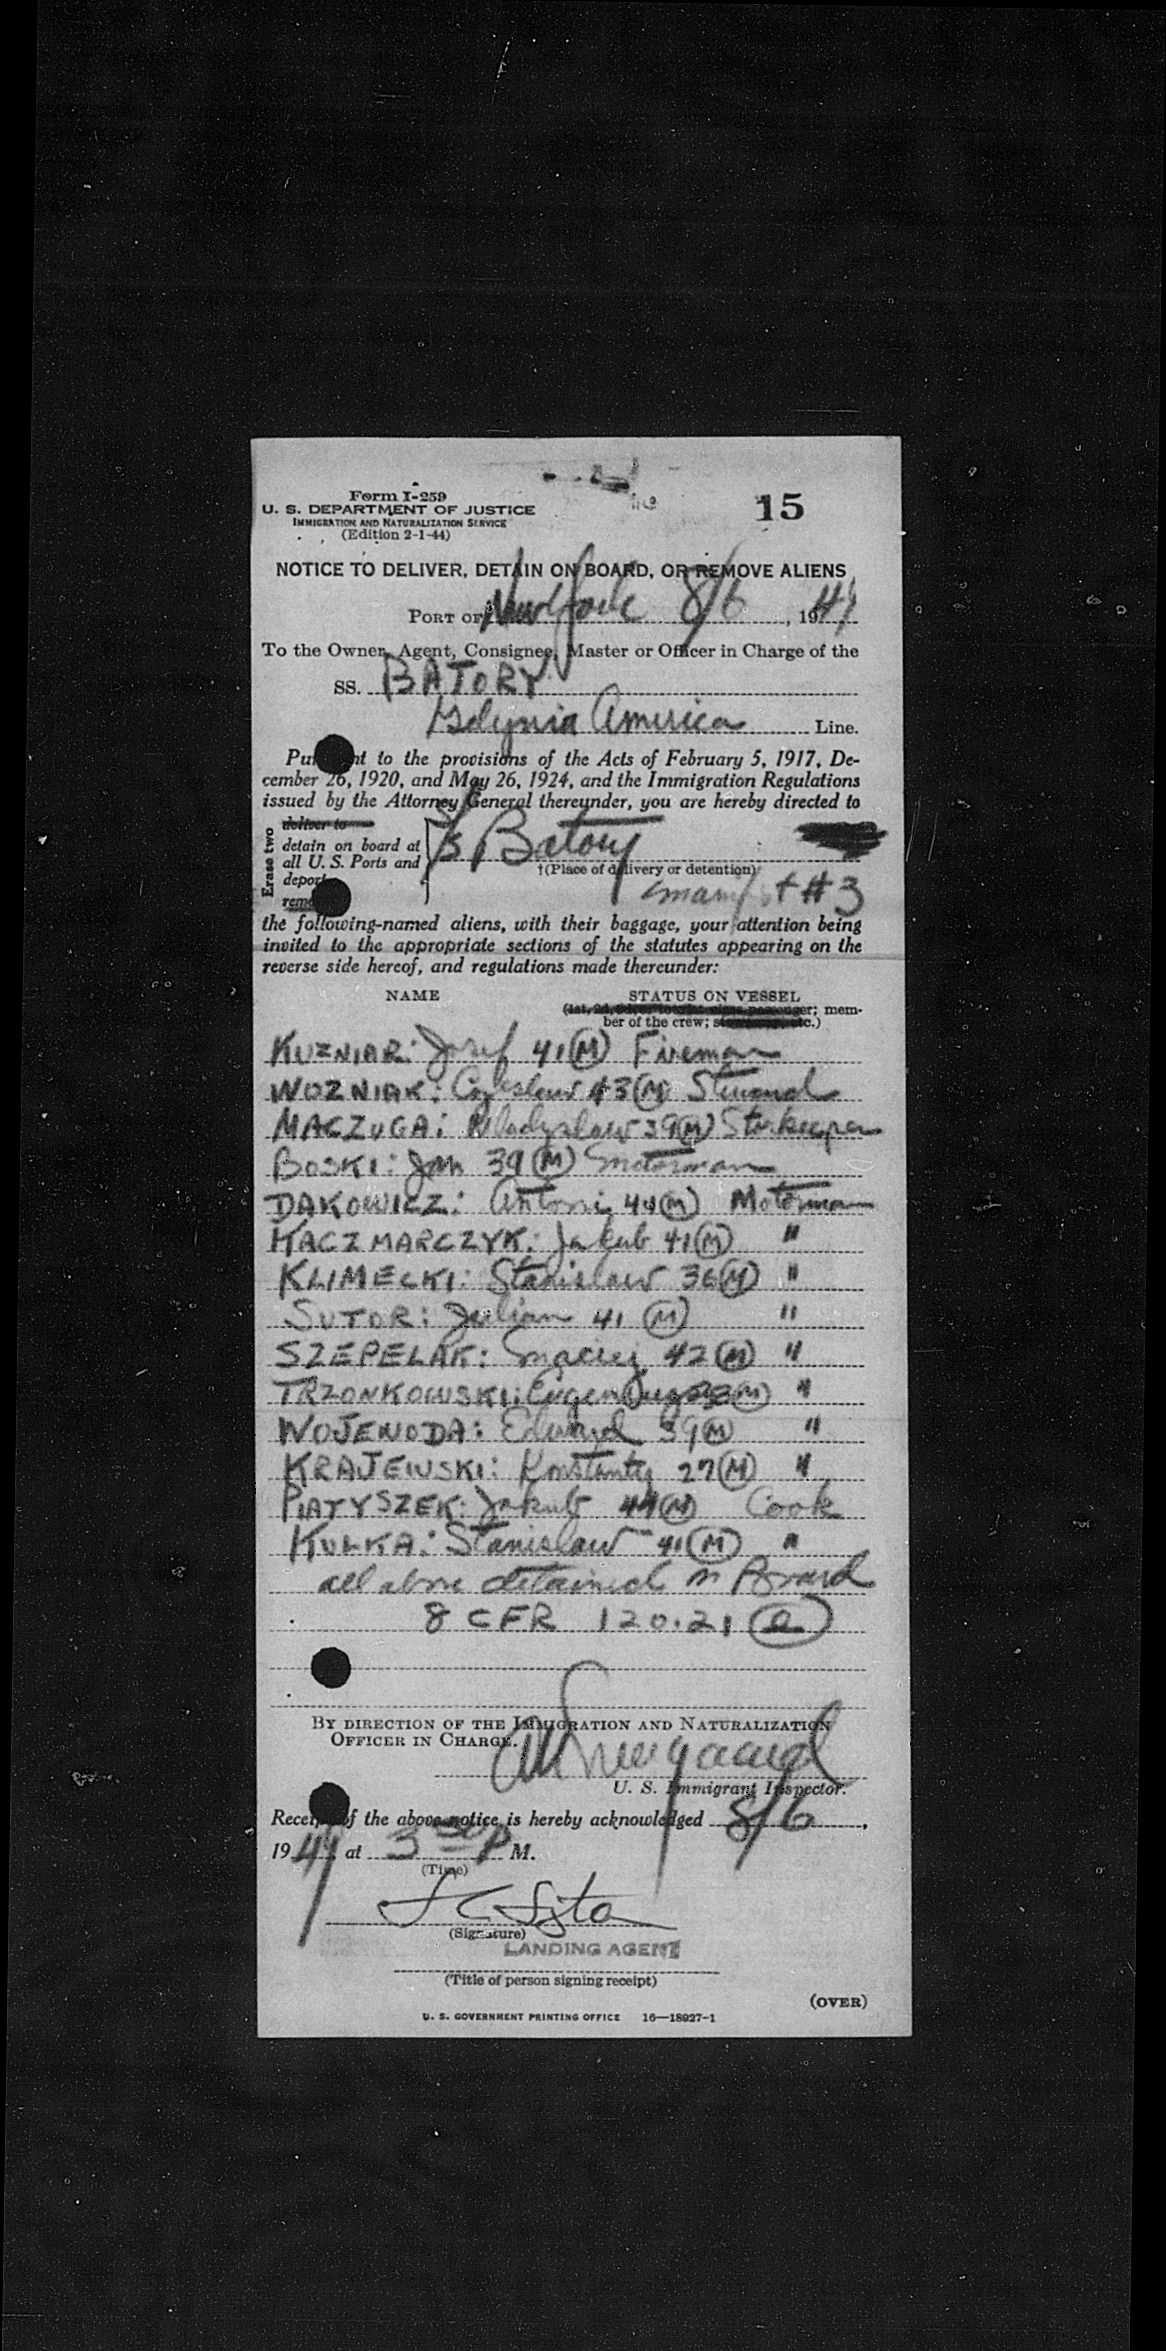 15
Form I-259
U. S. DEPARTMENT OF JUSTICE
IMMIGRATION AND NATURALIZATION SERVICE
(Edition 2-1-44)
NOTICE TO DELIVER, DETAIN ON BOARD, OR REMOVE ALIENS
PORT OF New York 8/6, 1949
To the Owner, Agent, Consignee, Master or Officer in Charge of the
SS. BATORY
Gdynia America Line.
Pursuant to the provisions of the Acts of February 5, 1917, De-
cember 26, 1920, and May 26, 1924, and the Immigration Regulations
issued by the Attorney General thereunder, you are hereby directed to
Erase two
deliver to
detain on board at
all U. S. Ports and
deport
remove
Batory
†(Place of delivery or detention)
manifest #3
the following-named aliens, with their baggage, your attention being
invited to the appropriate sections of the statutes appearing on the
reverse side hereof, and regulations made thereunder:
NAME STATUS ON VESSEL
(1st, 2d, passenger; mem-
ber of the crew; etc.)
KUZNIAR: Josef 41 (M) Fireman
WOZNIAK: Czeslaw 43 (M) Steward
MACZUGA: Wladyslaw 39 (M) Storkeeper
BOSKI: Jan 39 (M) Motorman
DAKOWICZ: Antoni 44 (M) Motorman
KACZMARCZYK: Jakub 41 (M) "
KLIMECKI: Stanislaw 36 (M) "
SUTOR: Julian 41 (M) "
SZEPELAK: Maciej 42 (M) "
TRZONKOWSKI: (M) "
WOJEWODA: Edward 39 (M) "
KRAJEWSKI: Konstanty 27 (M) "
PIATYSZEK: Jakub 44 (M) Cook
KULKA: Stanislaw 41 (M) "
all above detained on Board
8 CFR 120.21 (a)
BY DIRECTION OF THE IMMIGRATION AND NATURALIZATION
OFFICER IN CHARGE.
U. S. Immigrant Inspector.
Receipt of the above notice is hereby acknowledged 8/6,
1949, at 3 P M.
(Time)
(Signature)
LANDING AGENT
(Title of person signing receipt)
(OVER)
U. S. GOVERNMENT PRINTING OFFICE 16—18927-1